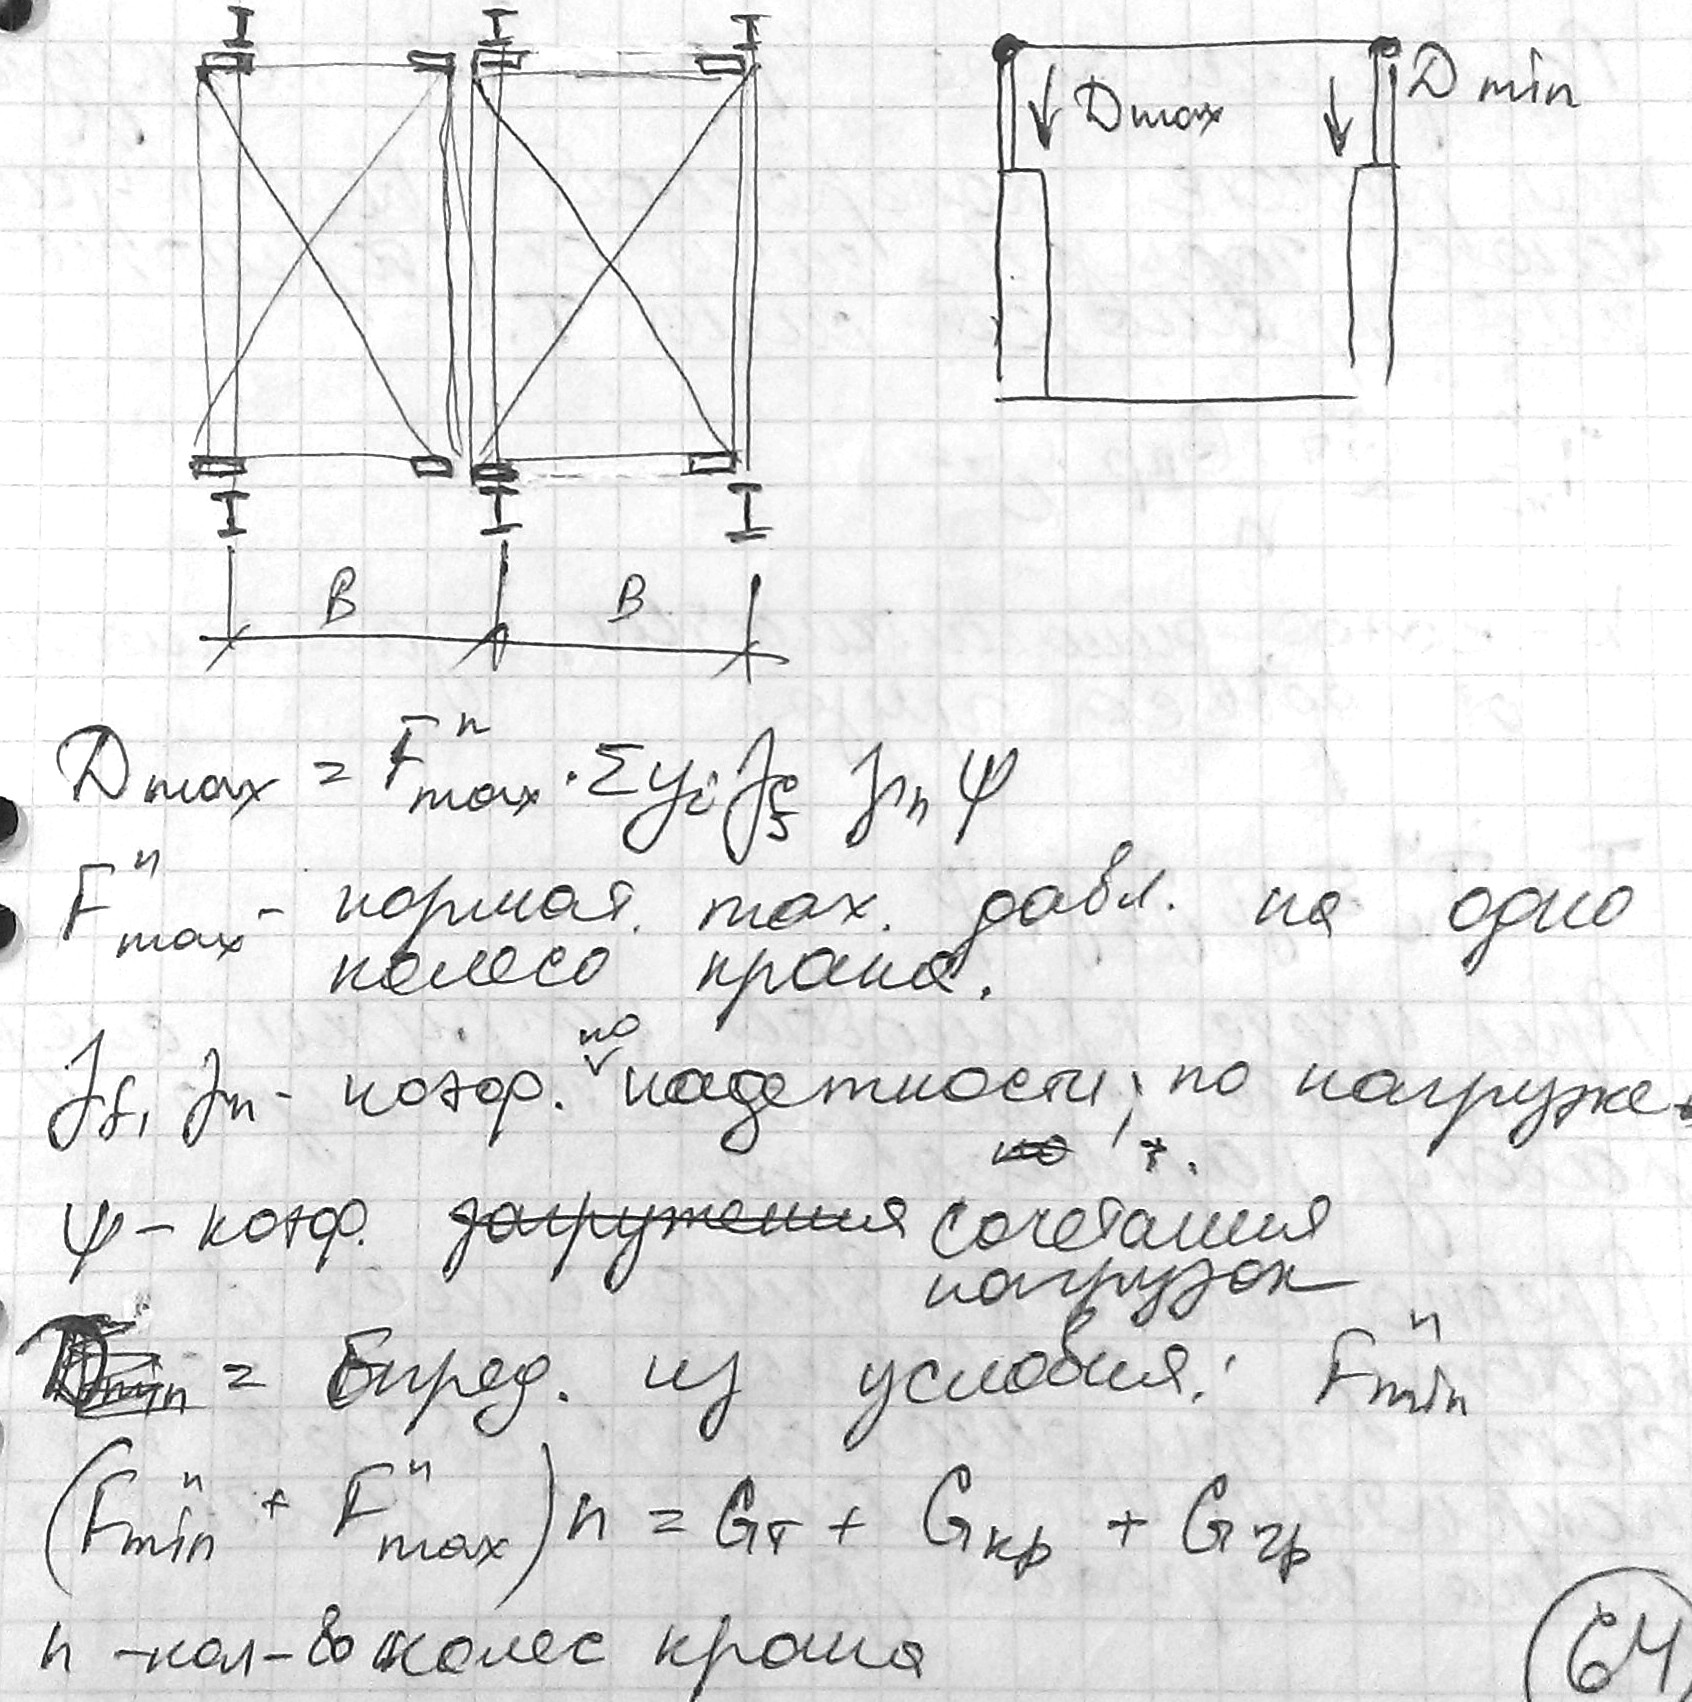 Dmax
Dmin
B B
Dmax = Fⁿmax · Σyᵢ γf γn ψ
Fⁿmax - нормат. max. давл. на одно
колесо крана.
γf, γn - коэф. по надежности, по нагруже-
ψ - коэф. загружения сочетания
нагрузок
Dmin = Опред. из условия: Fⁿmin
(Fⁿmin + Fⁿmax) n = Gт + Gкр + Gгр
n - кол-во колес крана
64